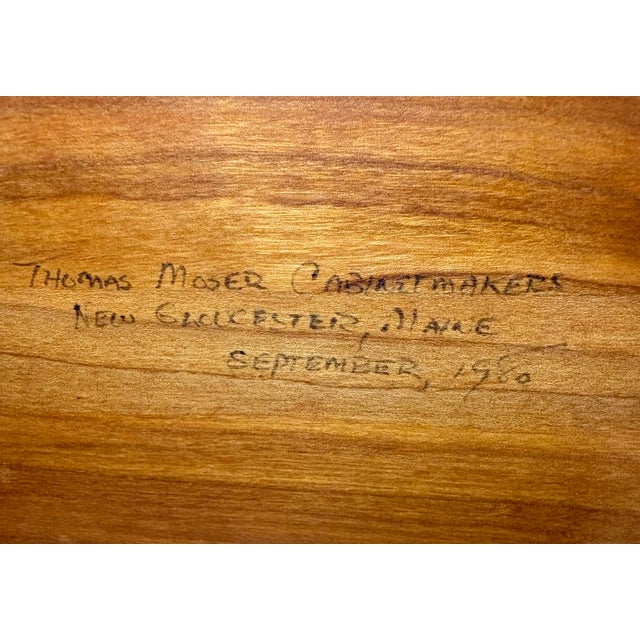 THOMAS MOSER CABINETMAKERS
NEW GLOUCESTER, MAINE
SEPTEMBER, 1980